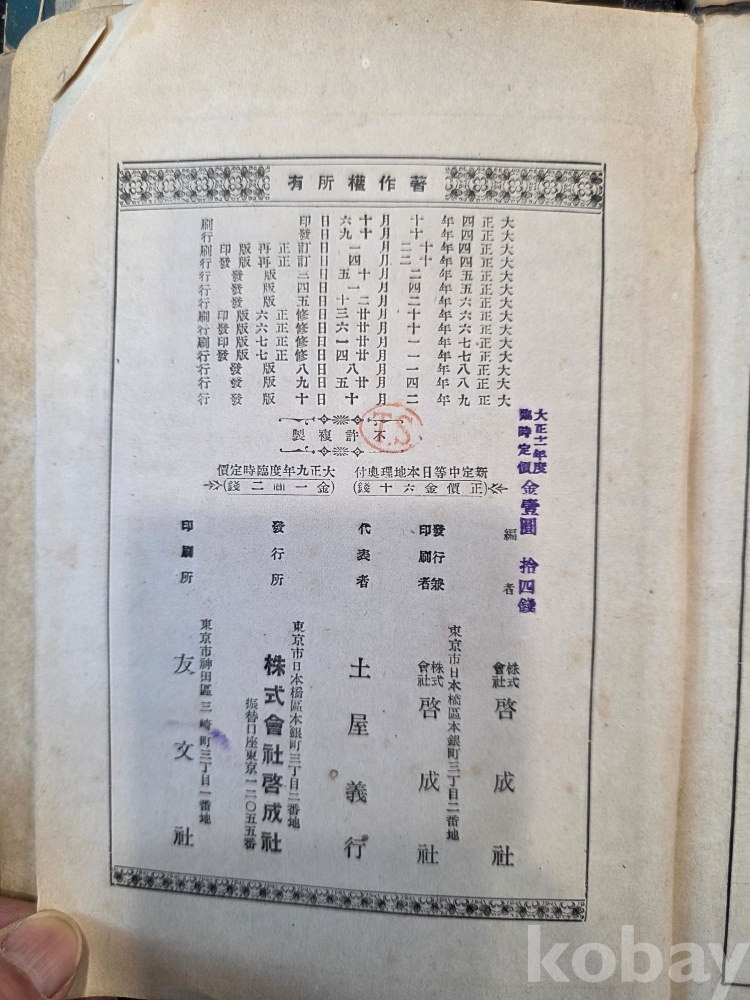 著作權所有
大正四年十月十六日印刷
大正四年十月十九日發行
大正四年十二月一日訂正再版印刷
大正四年十二月四日訂正再版發行
大正五年二月十五日三版發行
大正五年四月一日四版發行
大正六年二月二十日五版發行
大正六年十月廿三日修正六版印刷
大正六年十月廿六日修正六版發行
大正七年一月廿一日修正七版印刷
大正七年一月廿四日修正七版發行
大正八年一月八日八版發行
大正八年四月廿五日九版發行
大正九年二月十日十版發行
不許複製
T.S
新定中等日本地理奥付
正價金六十錢
大正九年度臨時定價
金一圓二錢
大正十一年度
臨時定價 金壹圓 拾四錢
編者 株式會社 啓成社
東京市日本橋區本銀町三丁目二番地
發行兼印刷者 株式會社 啓成社
代表者 土屋義行
東京市日本橋區本銀町三丁目二番地
發行所 株式會社啓成社
振替口座東京一二〇五五番
東京市神田區三崎町三丁目一番地
印刷所 友文社
kobay